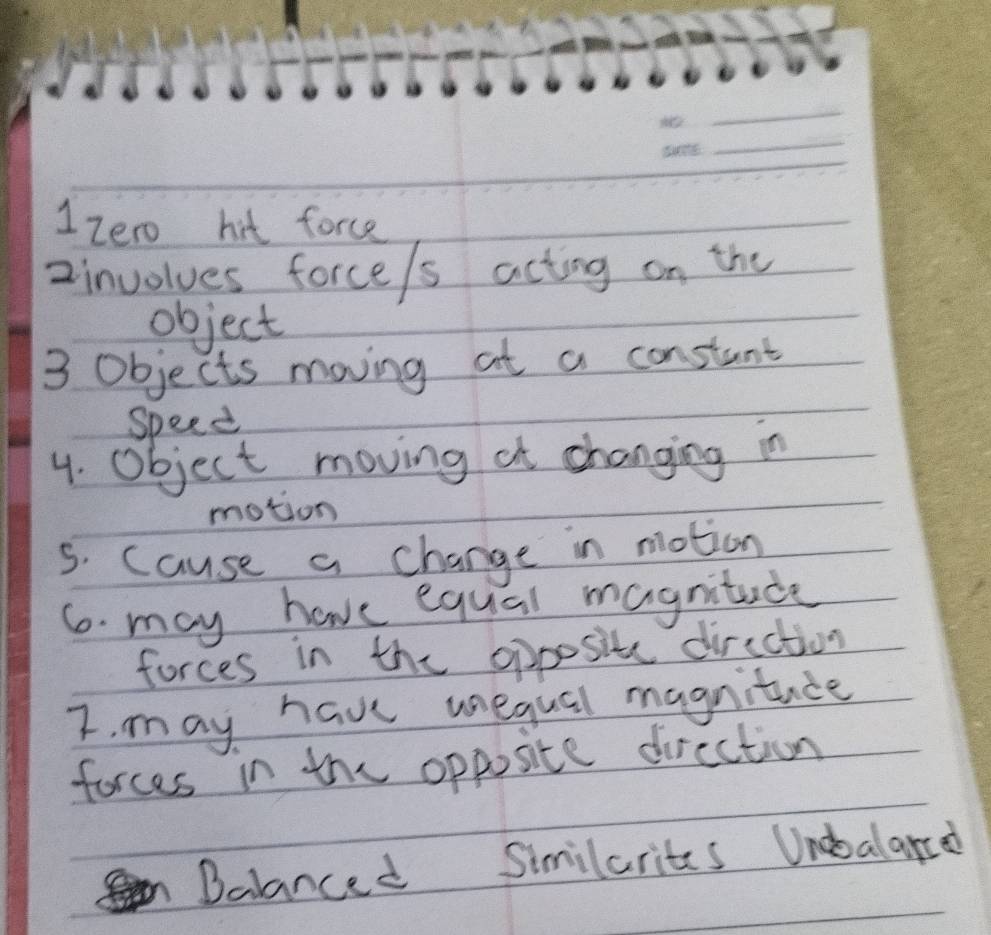 NO
DATE
1 Zero hit force
2 involves force/s acting on the
object
3 Objects moving at a constant
speed
4. Object moving at changing in
motion
5. Cause a change in motion
6. may have equal magnitude
forces in the opposite direction
7. may have unequal magnitude
forces in the opposite direction
Balanced Similarites Unbalanced